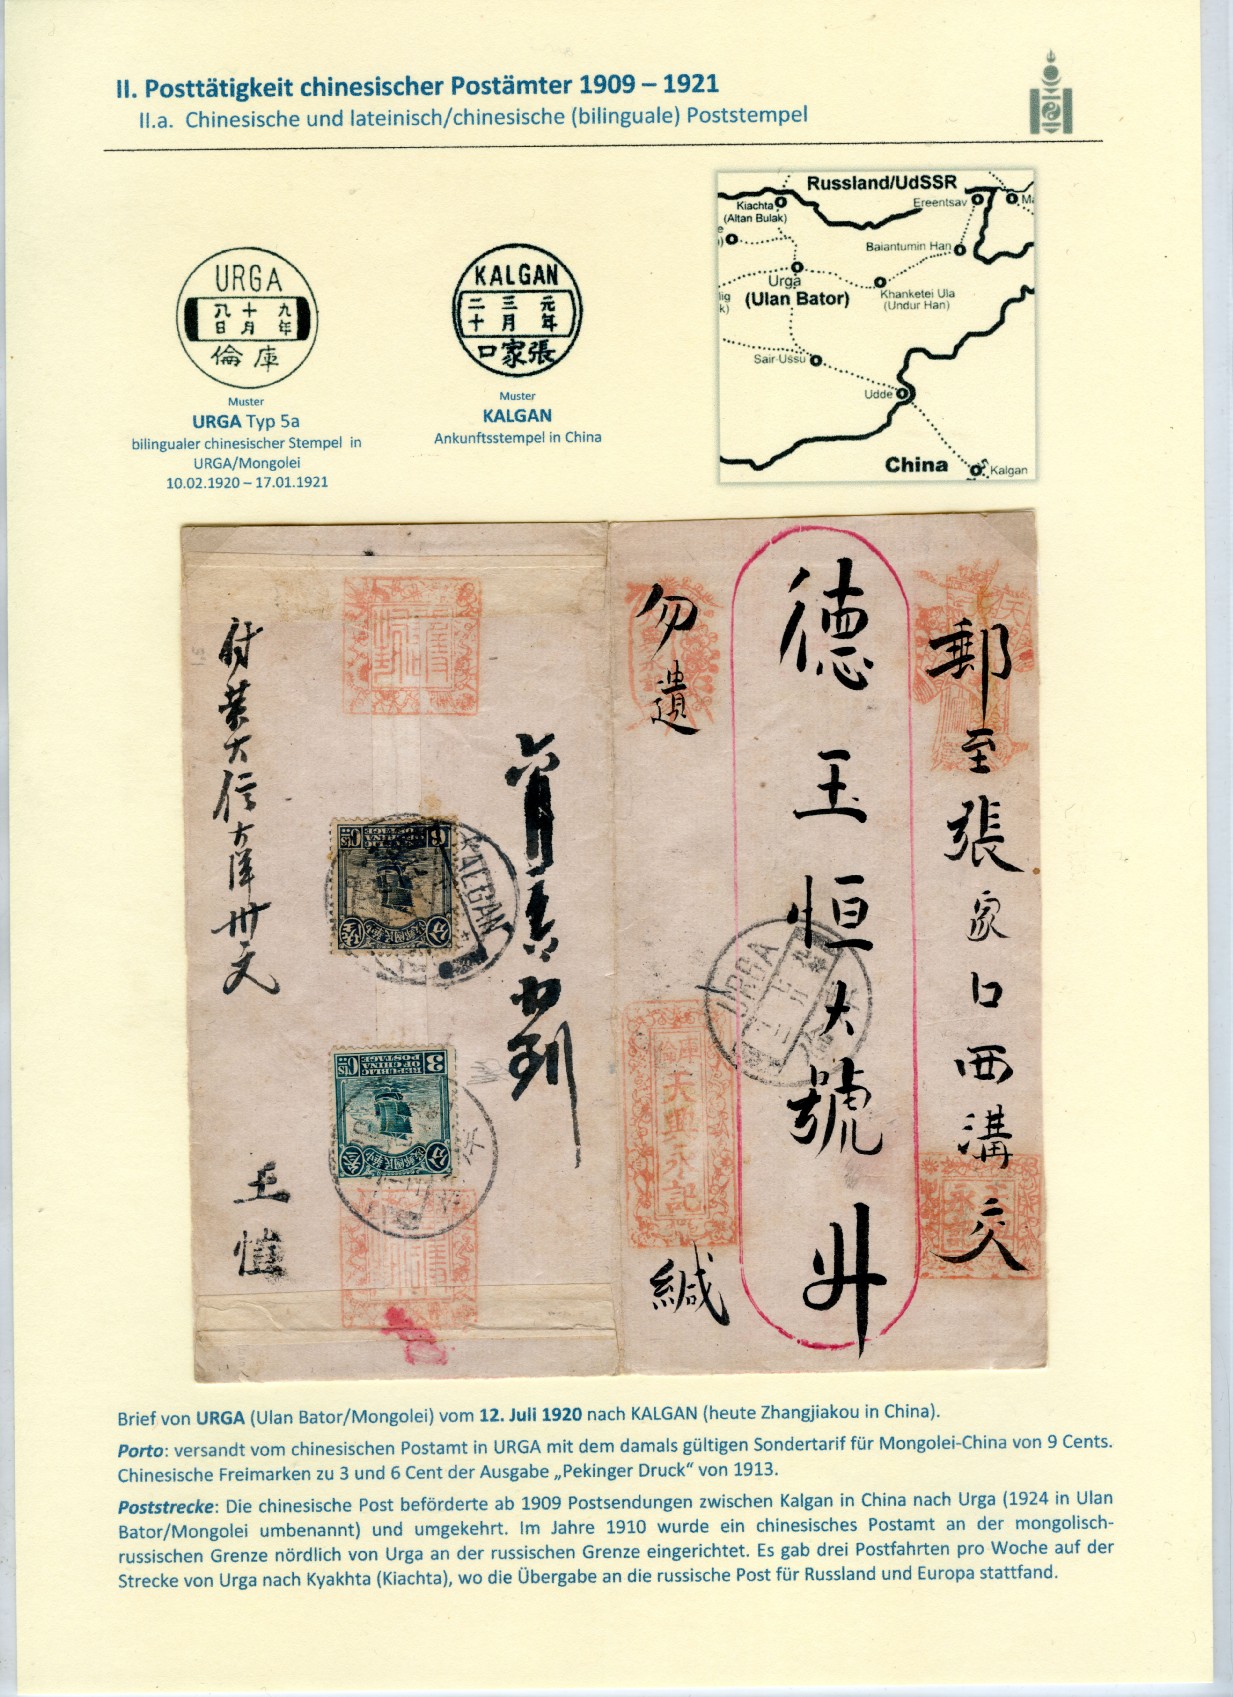 II. Posttätigkeit chinesischer Postämter 1909 – 1921
II.a. Chinesische und lateinisch/chinesische (bilinguale) Poststempel
URGA
八十九
日月年
倫庫
Muster
URGA Typ 5a
bilingualer chinesischer Stempel in
URGA/Mongolei
10.02.1920 – 17.01.1921
KALGAN
二三元
十月年
口家張
Muster
KALGAN
Ankunftsstempel in China
Russland/UdSSR
Kiachta
(Altan Bulak)
Ereentsav
Baiantumin Han
Urga
(Ulan Bator)
Khanketei Ula
(Undur Han)
Sair-Ussu
Udde
China
Kalgan
郵至張家口西溝交
德玉恒大號升
勿遺
緘
庫倫
天興永記
URGA
KALGAN
6 Cts
3 Cts
REPUBLIC
OF CHINA
POSTAGE
Brief von URGA (Ulan Bator/Mongolei) vom 12. Juli 1920 nach KALGAN (heute Zhangjiakou in China).
Porto: versandt vom chinesischen Postamt in URGA mit dem damals gültigen Sondertarif für Mongolei-China von 9 Cents.
Chinesische Freimarken zu 3 und 6 Cent der Ausgabe „Pekinger Druck“ von 1913.
Poststrecke: Die chinesische Post beförderte ab 1909 Postsendungen zwischen Kalgan in China nach Urga (1924 in Ulan
Bator/Mongolei umbenannt) und umgekehrt. Im Jahre 1910 wurde ein chinesisches Postamt an der mongolisch-
russischen Grenze nördlich von Urga an der russischen Grenze eingerichtet. Es gab drei Postfahrten pro Woche auf der
Strecke von Urga nach Kyakhta (Kiachta), wo die Übergabe an die russische Post für Russland und Europa stattfand.